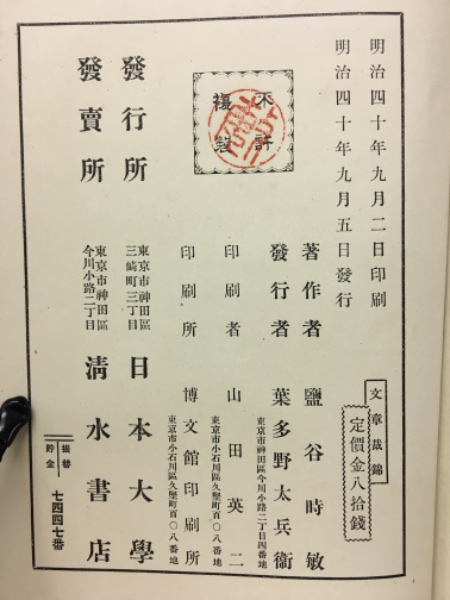 明治四十年九月二日印刷
明治四十年九月五日發行
文章裁錦
定價金八拾錢
不許
複製
著作者 鹽谷時敏
發行者 葉多野太兵衞
東京市神田區今川小路二丁目四番地
印刷者 山田英二
東京市小石川區久堅町百〇八番地
印刷所 博文館印刷所
東京市小石川區久堅町百〇八番地
發行所
東京市神田區
三崎町三丁目
日本大學
發賣所
東京市神田區
今川小路二丁目
淸水書店
振替
貯金
七四四七番